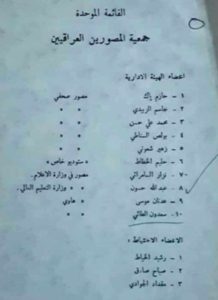 القائمة الموحدة
جمعية المصورين العراقيين
اعضاء الهيئة الادارية
١ - حازم باك مصور صحفي
٢ - جاسم الزبيدي » »
٣ - محمد علي حسن » »
٤ - بولص السناطي » »
٥ - زهير شعوني » »
٦ - حليم الخطاط » ستوديو خاص »
٧ - نزار السامرائي مصور في وزارة الاعلام.
٨ - عبدالله حسون » وزارة التعليم العالي.
٩ - عدنان موسى » هاوي
١٠ - سعدون الطائي » »
الاعضاء الاحتياط :
١ - رشيد الخياط
٢ - صباح صادق
٣ - مقداد الجوادي